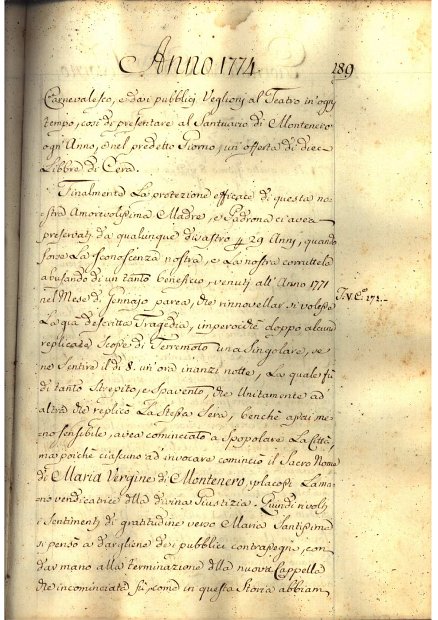 Anno 1774.
189
Carnevalesco, e dari pubblici Veglioni al Teatro in ogni
tempo, così di presentare al Santuario di Montenero
ogn'Anno, e nel predetto Giorno, un'offerta di dieci
Libbre di Cera.
Finalmente La protezione efficace di questa no=
stra Amorevolissima Madre, e Padrona ci avea
preservati da qualunque disastro p 29 Anni, quando
forse La sconoscenza nostra, e La nostra corruttela
abusando di un tanto beneficio, venuti all'Anno 1771
nel Mese di Gennajo parea, che rinnovellar si volesse
T. V. C.
La già descritta Tragedia, imperocchè doppo alcune
replicate Scosse di Terremoto una Singolare, se
ne Sentì il dì 8. un'ora inanzi notte, La quale fù
di tanto Strepito, e Spavento, che Unitamente ad
altra che replicò La Stessa Sera, benchè assai me=
no sensibile, avea cominciato a Spopolare La Città,
ma poichè ciascuno ad invocare cominciò il Sacro Nome
di Maria Vergine di Montenero, placossi La ma=
no vendicatrice della divina Giustizia. Quindi rivolti
i Sentimenti di gratitudine verso Maria Santissima
si pensò a dargliene de i pubblici contrasegni, con
dar mano alla terminazione della nuova Cappella
che incominciata fù, come in questa Storia abbiam